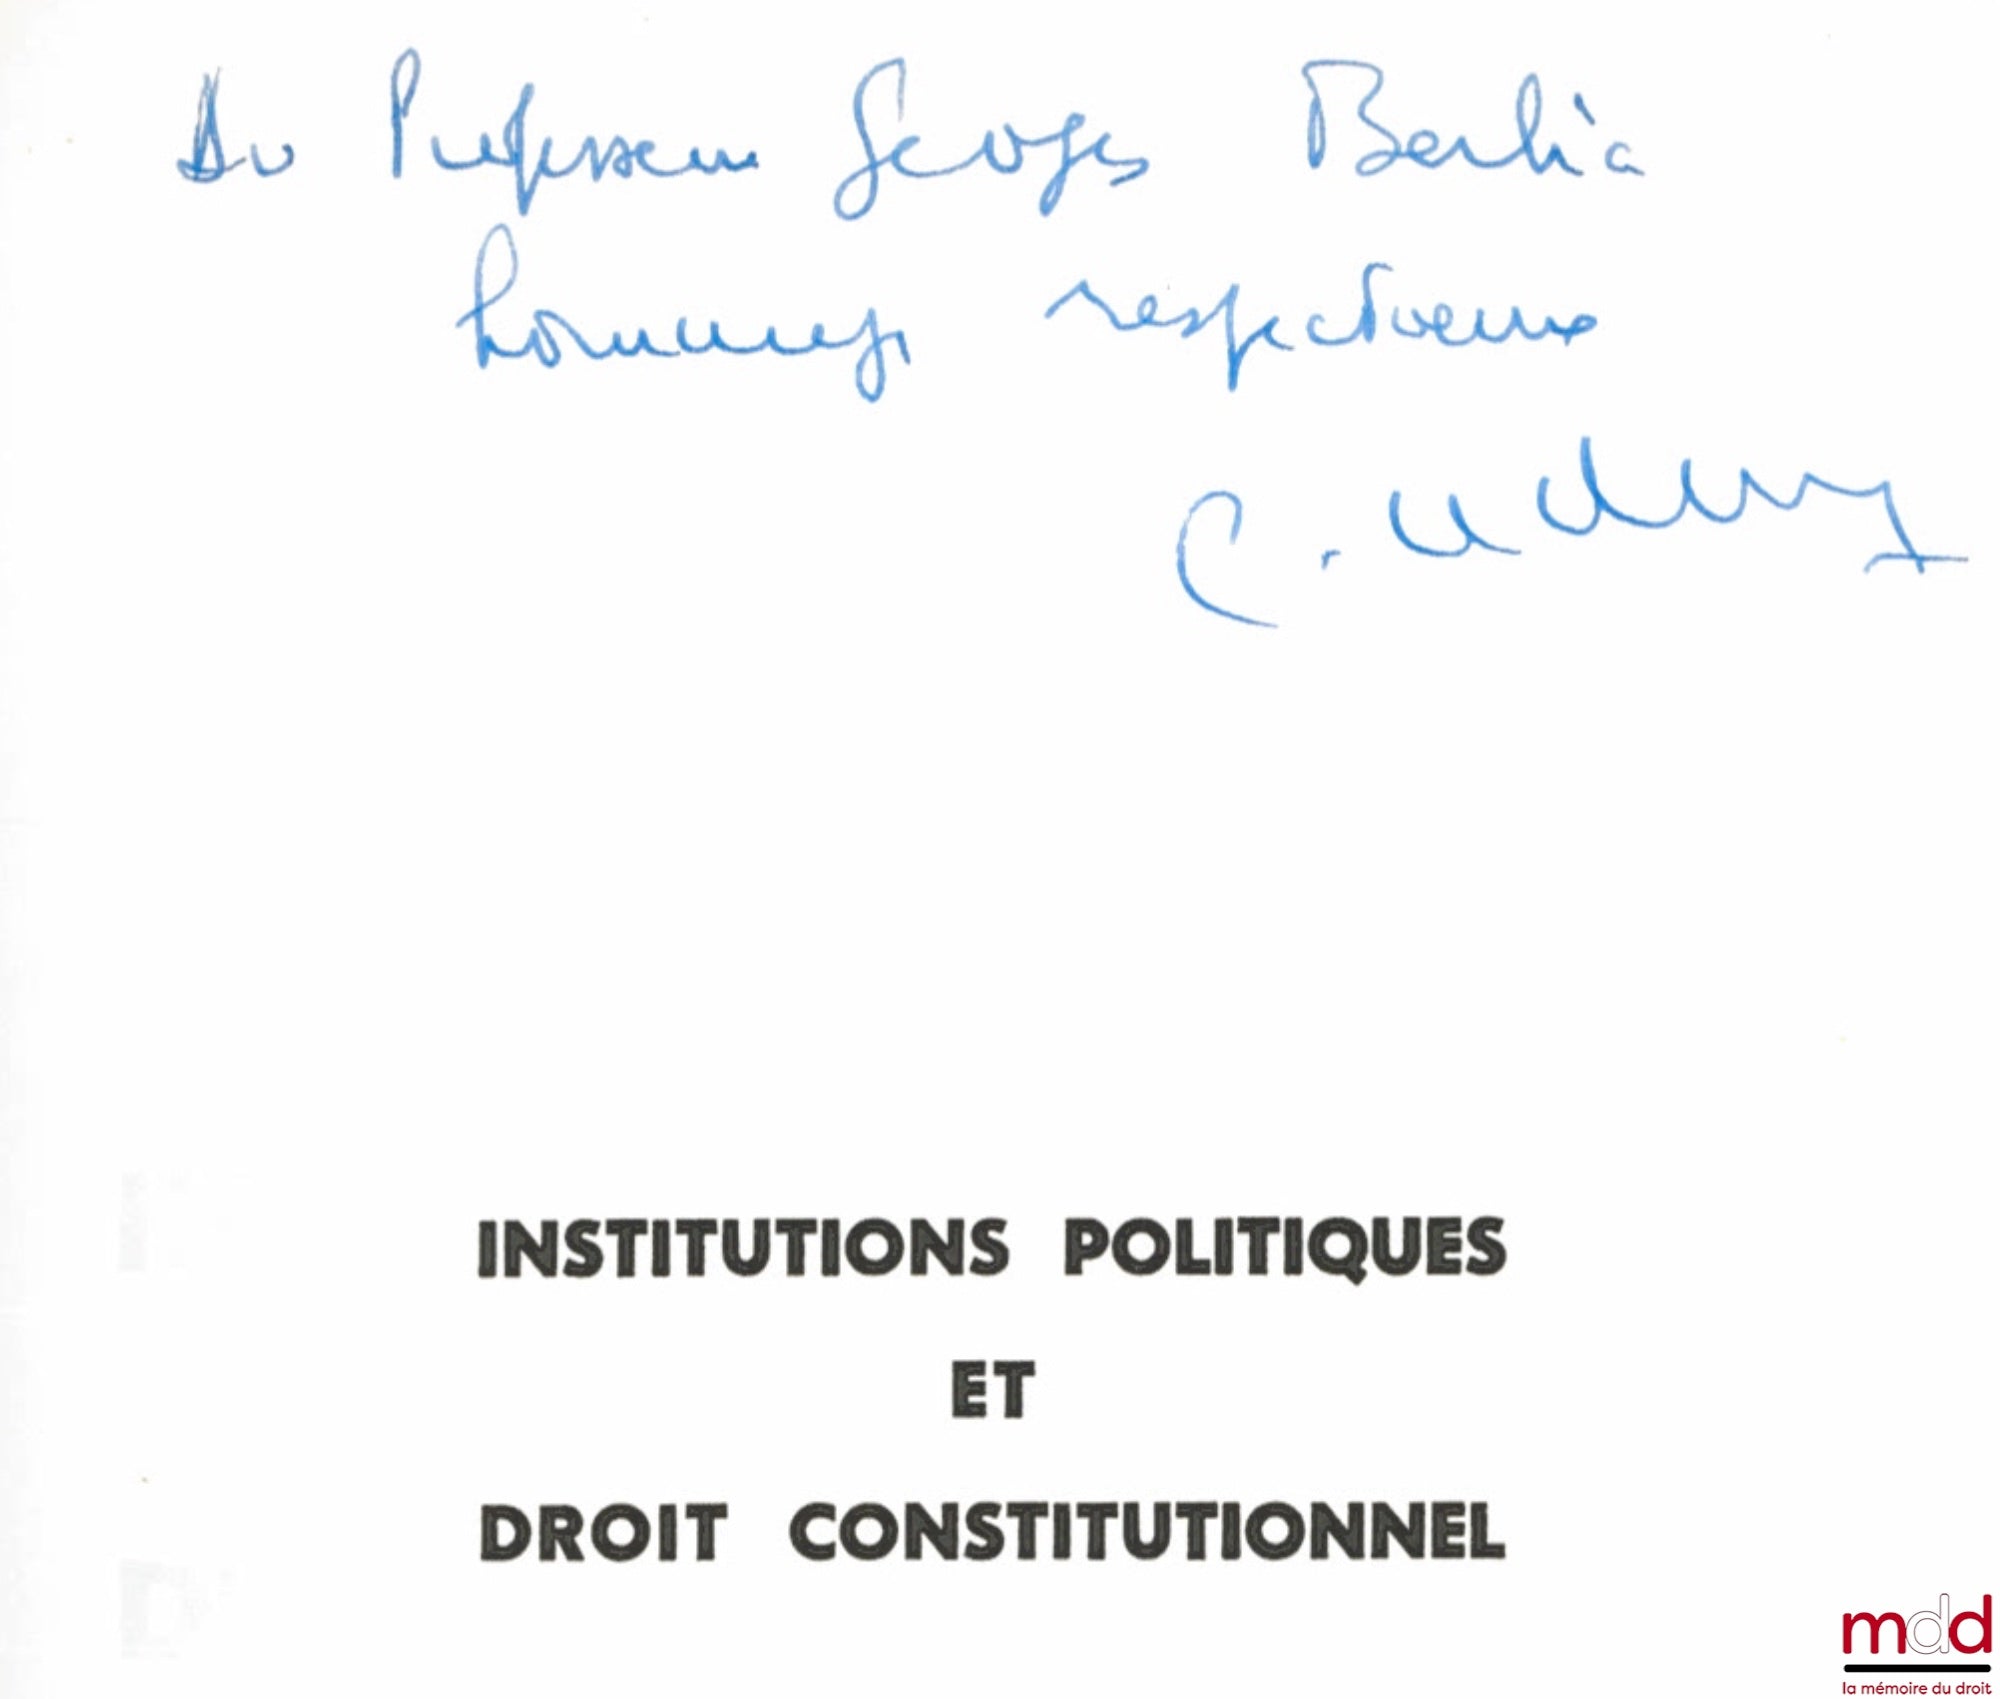 Au Professeur Georges Berlia
hommage respectueux
INSTITUTIONS POLITIQUES
ET
DROIT CONSTITUTIONNEL
mdd
la mémoire du droit